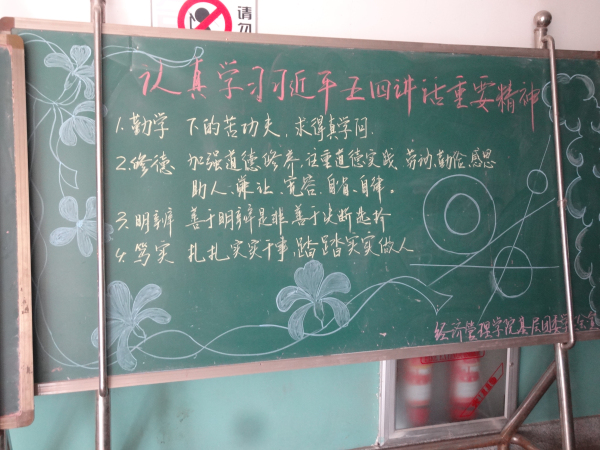 请勿
认真学习习近平五四讲话重要精神
1.勤学 下的苦功夫，求得真学问.
2.修德 加强道德修养，注重道德实践 劳动,勤俭,感恩
助人,谦让,宽容,自省,自律。
3.明辨 善于明辨是非,善于决断选择
4.笃实 扎扎实实干事,踏踏实实做人
经济管理学院基层团委学